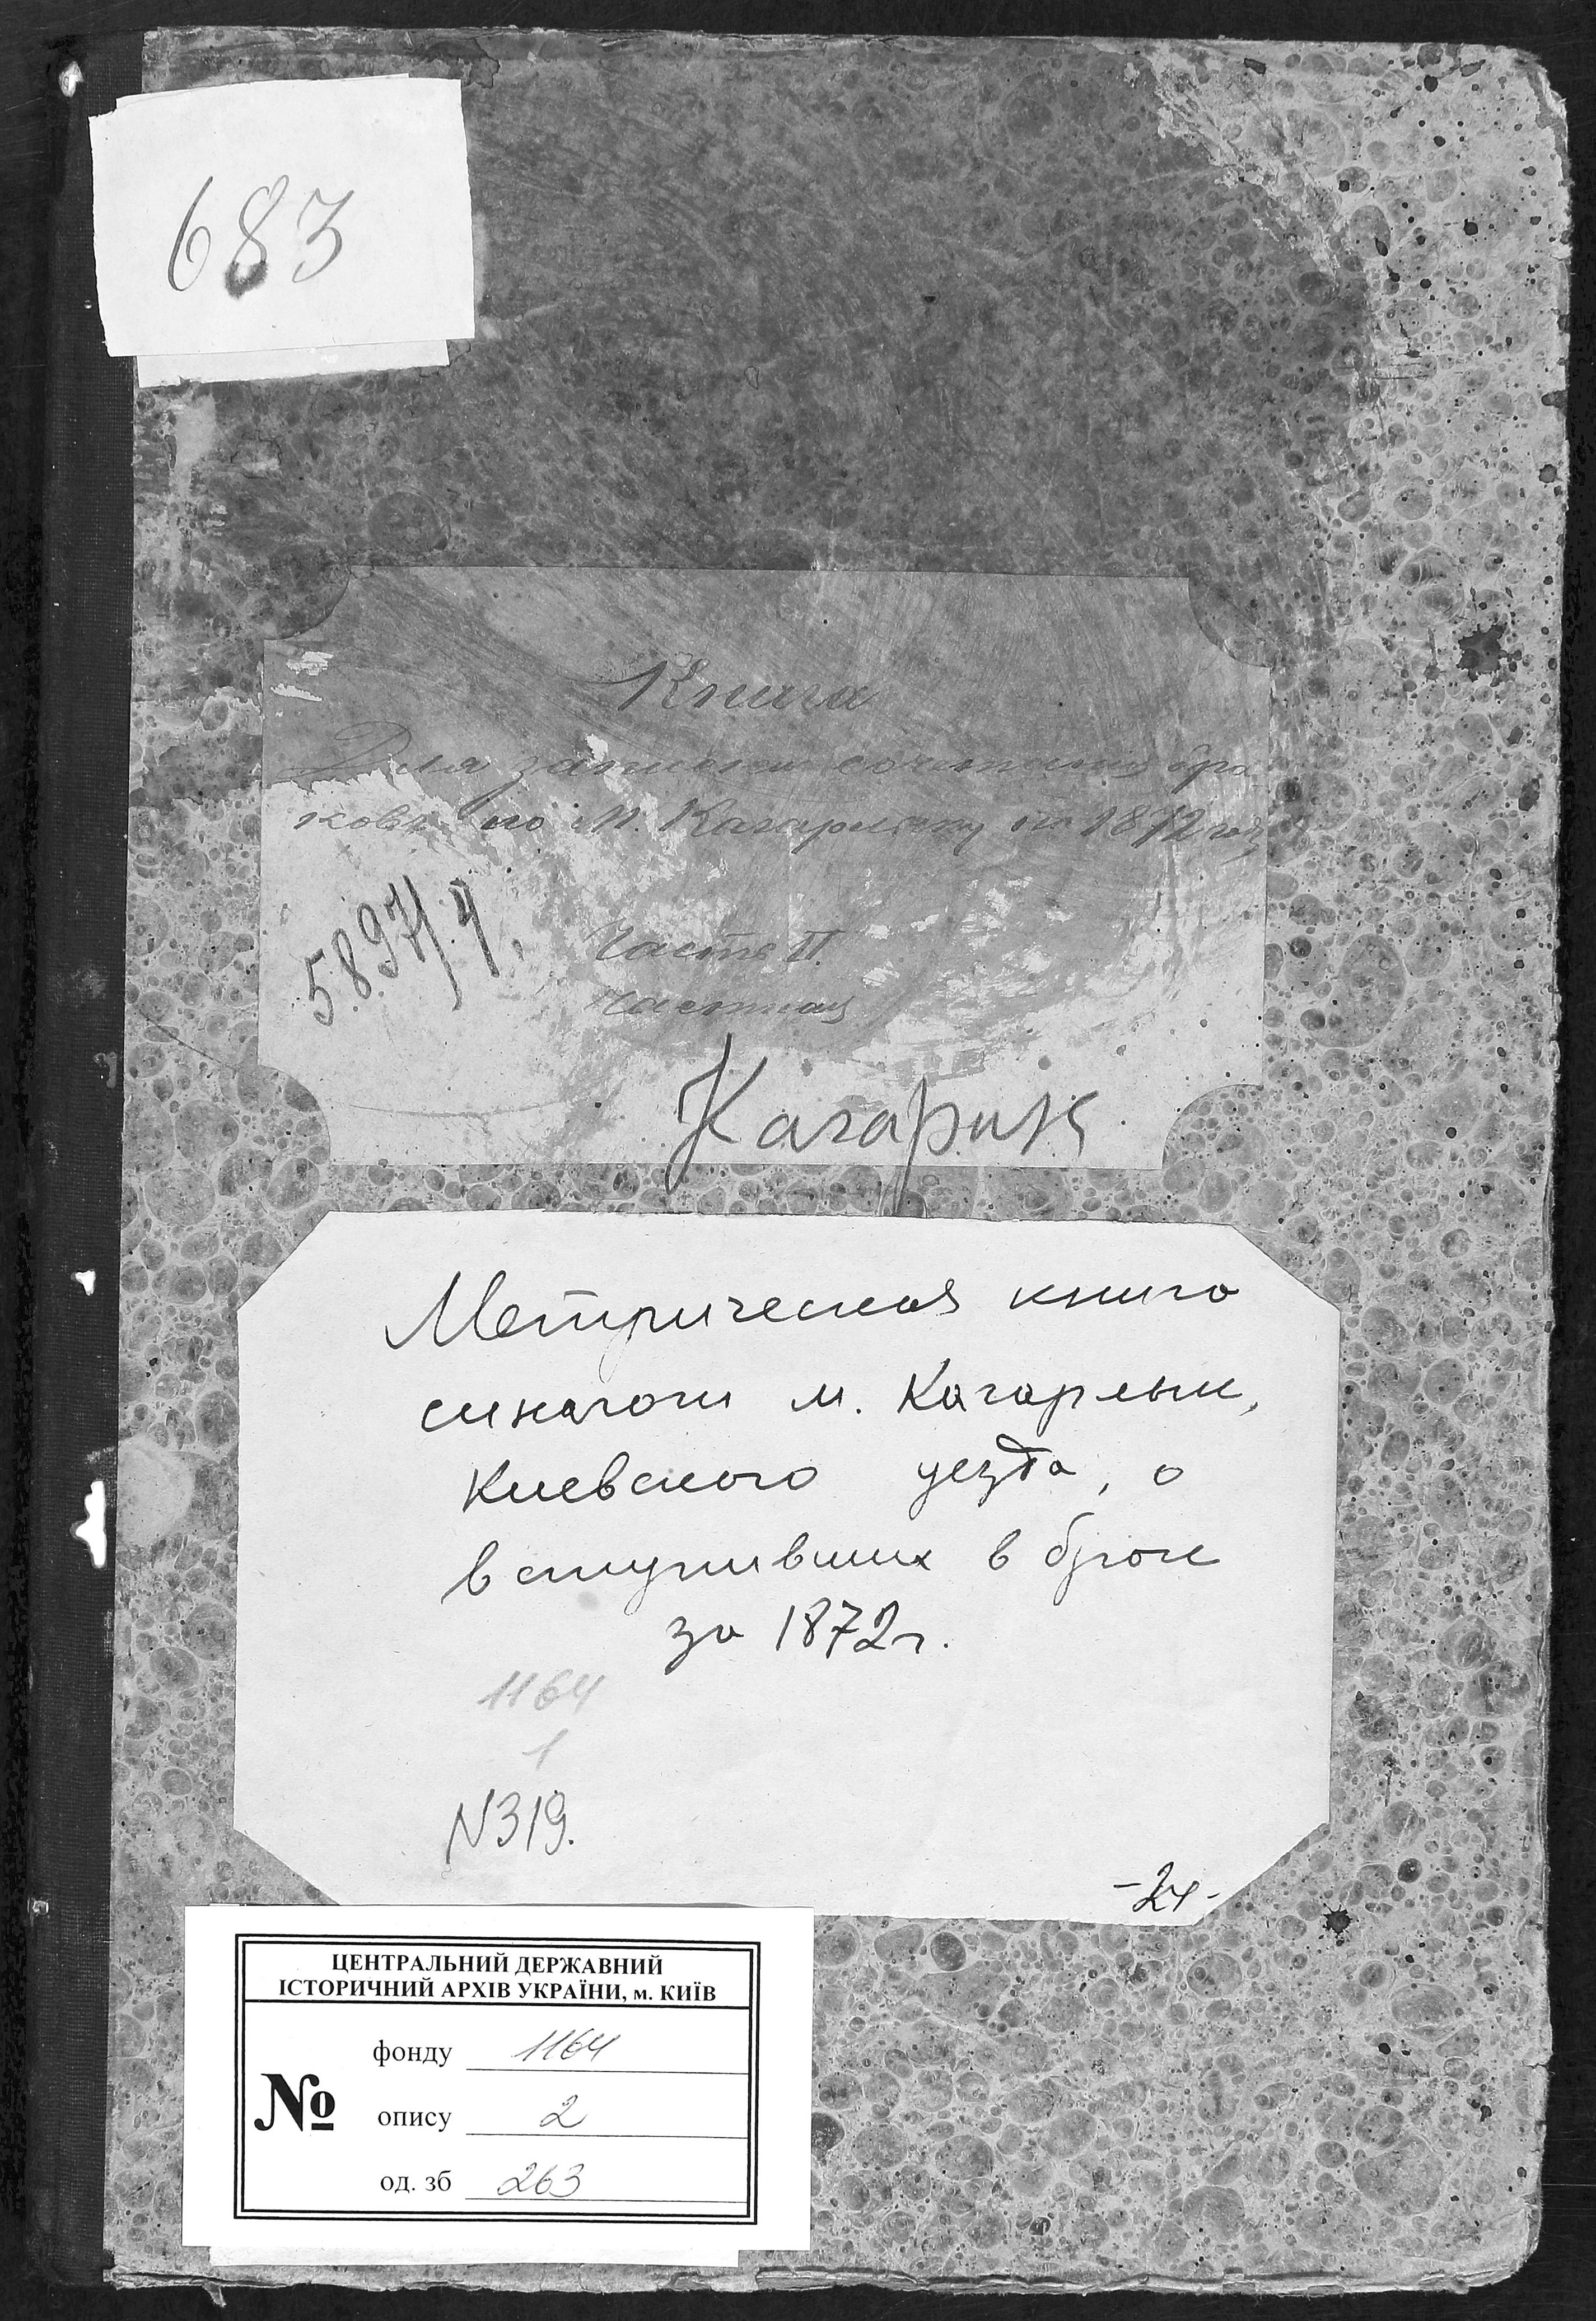 683
Книга
Для записки сочетанія бра
ковъ по м. Кагарлыку на 1872 годъ
5897/4.
Часть II
Частная
Кагарлык
Метрическая книга
синагоги м. Кагарлык,
Киевского уезда, о
вступивших в брак
за 1872 г.
1164
1
N319.
-24-
ЦЕНТРАЛЬНИЙ ДЕРЖАВНИЙ
ІСТОРИЧНИЙ АРХІВ УКРАЇНИ, м. КИЇВ
фонду 1164
№ опису 2
од. зб 263